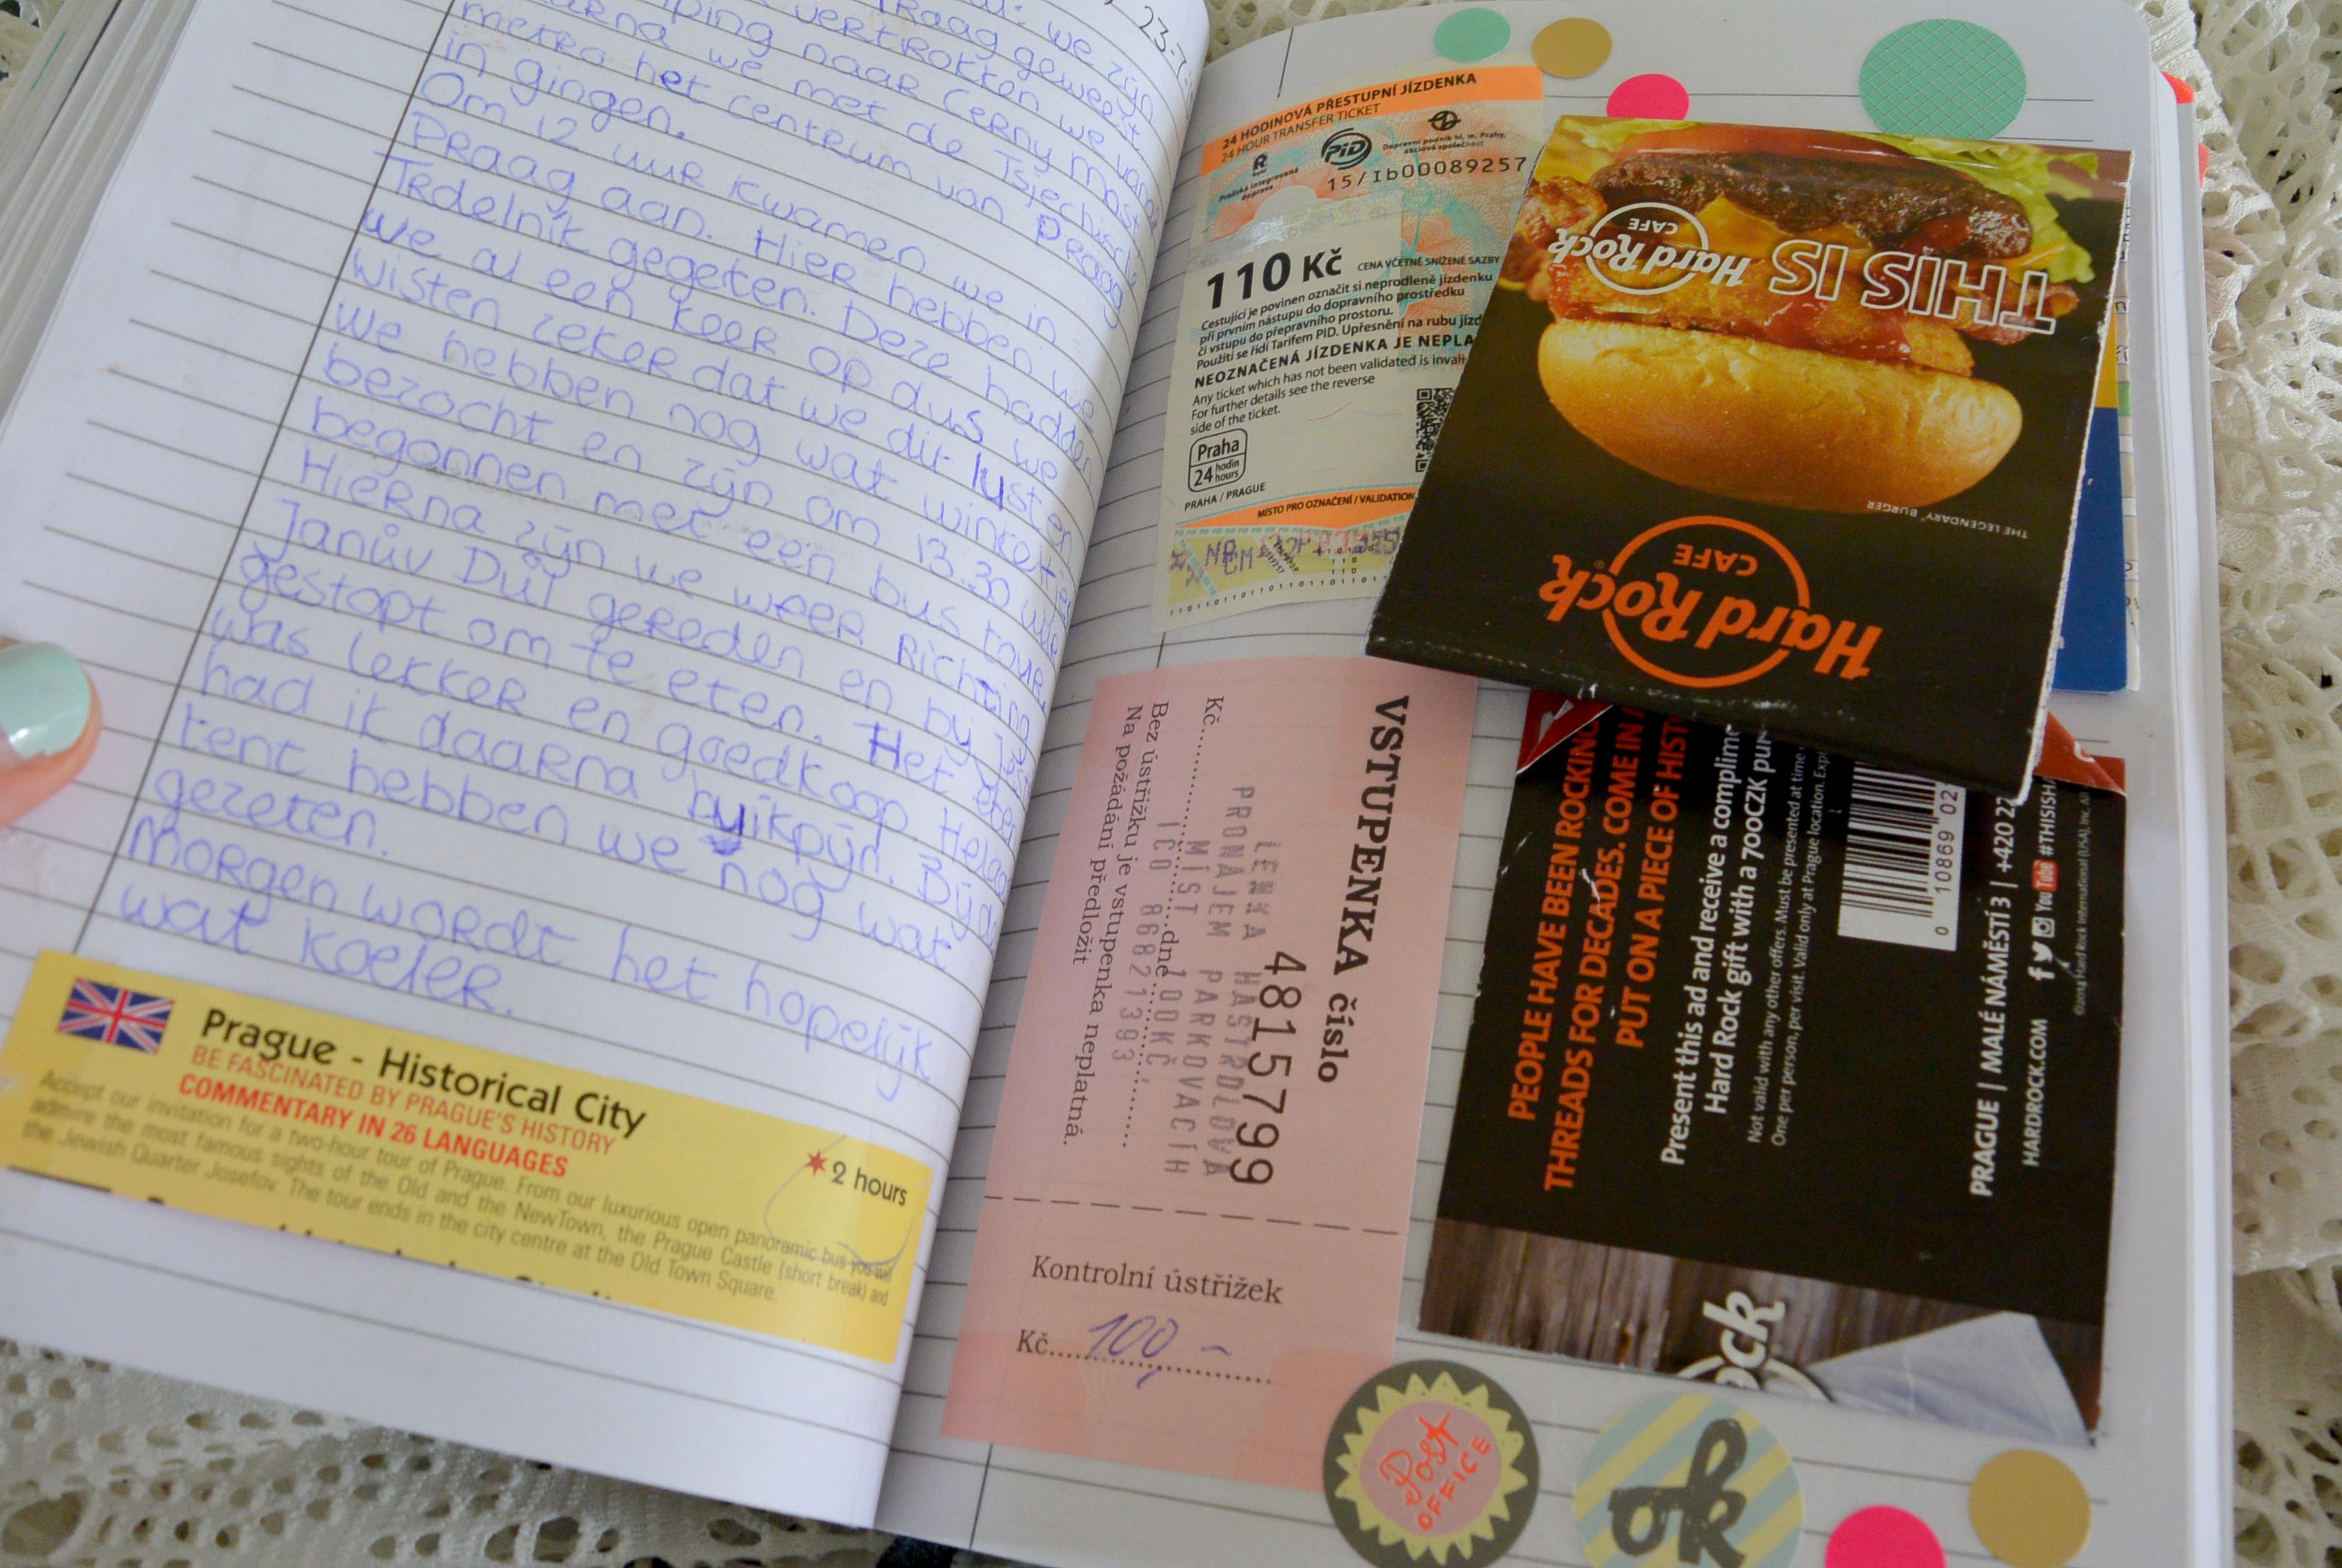 23-7-
Praag geweest
we zijn
vertrokken we van
camping naar Cerny most
we met de Tsjechische
metro het centrum van Praag
in gingen.
Om 12 uur kwamen we in
Praag aan. Hier hebben we
Trdelník gegeten. Deze hadden
we al een keer op dus we
wisten zeker dat we dit lusten
we hebben nog wat winkel
bezocht en zijn om 13.30
begonnen met een bus tour
Hierna zijn we weer Richting
Janův Důl gereden en bij
gestopt om te eten. Het eten
was lekker en goedkoop. Helaas
had ik daarna buikpijn. Bij de
tent hebben we nog wat
gezeten.
Morgen wordt het hopelijk
wat koeler.
Prague - Historical City
BE FASCINATED BY PRAGUE'S HISTORY
COMMENTARY IN 26 LANGUAGES
2 hours
Accept our invitation for a two-hour tour of Prague. From our luxurious open panoramic bus you will
admire the most famous sights of the Old and the NewTown, the Prague Castle (short break) and
the Jewish Quarter Josefov. The tour ends in the city centre at the Old Town Square.
24 HODINOVÁ PŘESTUPNÍ JÍZDENKA
24 HOUR TRANSFER TICKET
Pražská integrovaná
doprava
PID
Dopravní podnik hl. m. Prahy,
akciová společnost
15/Ib00089257
110 Kč CENA VČETNĚ SNÍŽENÉ SAZBY
Cestující je povinen označit si neprodleně jízdenku
při prvním nástupu do dopravního prostředku
či vstupu do přepravního prostoru.
Použití se řídí Tarifem PID. Upřesnění na rubu jízd
NEOZNAČENÁ JÍZDENKA JE NEPLA
Any ticket which has not been validated is invali
For further details see the reverse
side of the ticket.
Praha
24 hodin
hours
PRAHA / PRAGUE
MÍSTO PRO OZNAČENÍ / VALIDATION
THIS IS Hard Rock
CAFE
THE LEGENDARY® BURGER
Hard Rock
CAFE
VSTUPENKA číslo
4815799
LENKA HASTRDLOVÁ
PRONÁJEM PARKOVACÍH
MÍST
Kč
100KČ,
IČO 86821393
Bez ústřižku je vstupenka neplatná.
Na požádání předložit
dne
Kontrolní ústřižek
Kč 100,-
PEOPLE HAVE BEEN ROCKING
THREADS FOR DECADES. COME IN
PUT ON A PIECE OF HIST
Present this ad and receive a complime
Hard Rock gift with a 700CZK pur
Not valid with any other offers. Must be presented at time
One per person, per visit. Valid only at Prague location. Exp
0 10869 02
PRAGUE | MALÉ NÁMĚSTÍ 3 | +420 22
HARDROCK.COM
You Tube #THISISH
©2014 Hard Rock International (USA), Inc. All
ock
Post
OFFICE
ok